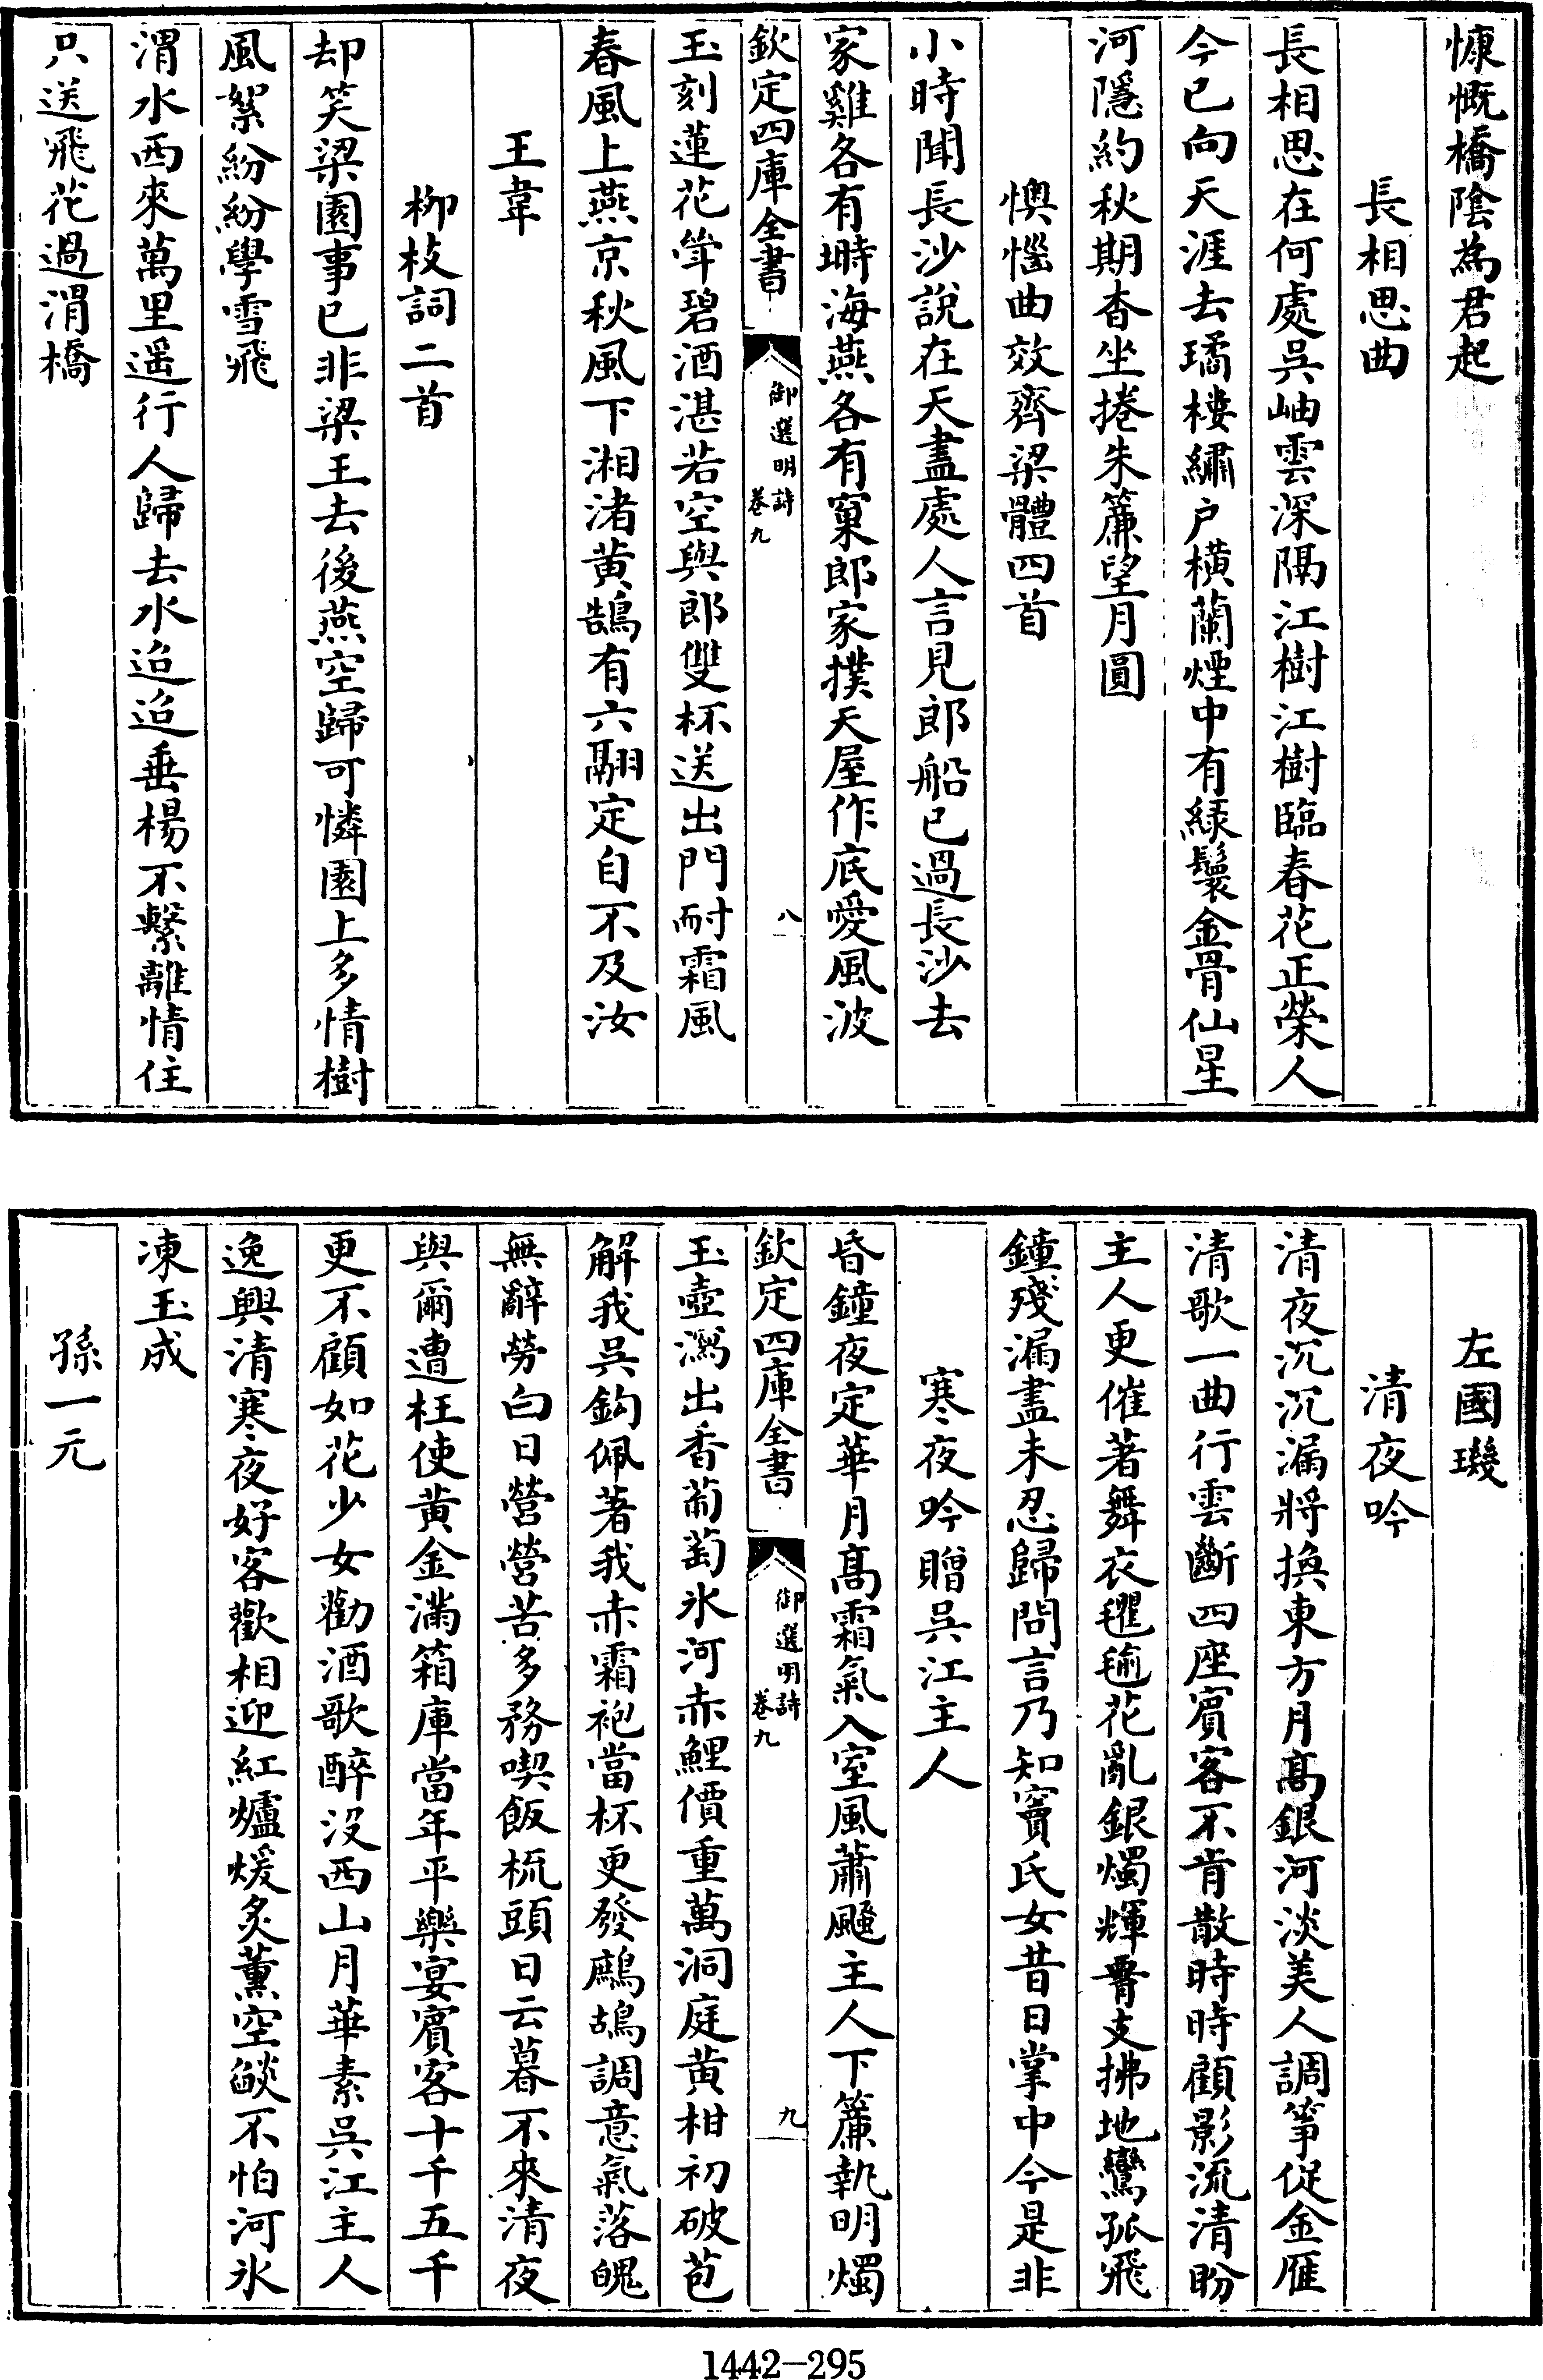 慷慨橋陰為君起
長相思曲
長相思在何處吳岫雲深隔江樹江樹臨春花正榮人
今已向天涯去璚樓繡户横蘭煙中有緑鬟金骨仙星
河隱約秋期杳坐捲朱簾望月圓
懊惱曲效齊梁體四首
小時聞長沙說在天盡處人言見郎船已過長沙去
家雞各有塒海燕各有窠郎家撲天屋作底愛風波
欽定四庫全書
御選明詩
卷九
八
玉刻蓮花笋碧酒湛若空與郎雙杯送出門耐霜風
春風上燕京秋風下湘渚黄鵠有六翮定自不及汝
王韋
柳枝詞二首
却笑梁園事已非梁王去後燕空歸可憐園上多情樹
風絮紛紛學雪飛
渭水西來萬里遥行人歸去水迢迢垂楊不繫離情住
只送飛花過渭橋
左國璣
清夜吟
清夜沉沉漏將换東方月髙銀河淡美人調箏促金雁
清歌一曲行雲斷四座賔客不肯散時時顧影流清盼
主人更催著舞衣氍毹花亂銀燭輝骨支拂地鸞孤飛
鐘殘漏盡未忍歸問言乃知竇氏女昔日掌中今是非
寒夜吟贈吳江主人
昏鐘夜定華月髙霜氣入室風蕭飈主人下簾執明燭
欽定四庫全書
御選明詩
卷九
九
玉壺瀉出香葡萄氷河赤鯉價重萬洞庭黄柑初破苞
解我吳鈎佩著我赤霜袍當杯更發鷓鴣調意氣落魄
無辭勞白日營營苦多務喫飯梳頭日云暮不來清夜
與爾遭枉使黄金滿箱庫當年平樂宴賔客十千五千
更不顧如花少女勸酒歌醉没西山月華素吳江主人
逸興清寒夜好客歡相迎紅爐煖炙薰空燄不怕河氷
凍玉成
孫一元
1442—295